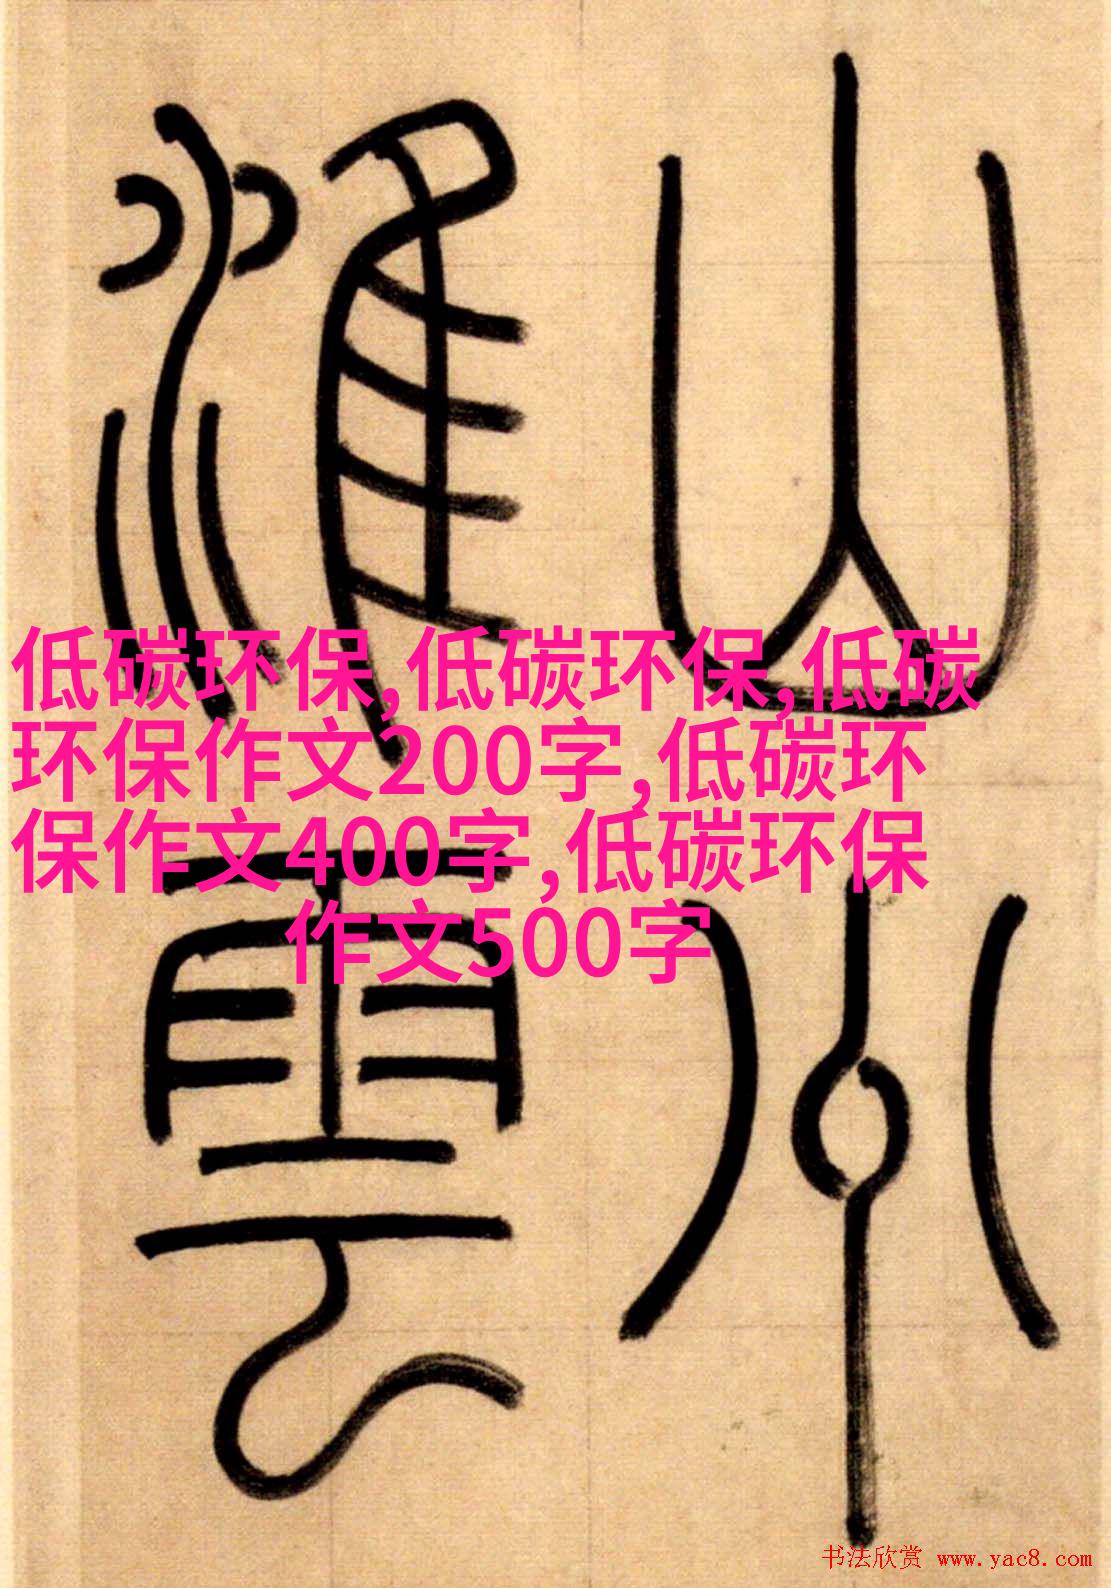 山
小
淮
雲
低碳环保,低碳环保,低碳
环保作文200字,低碳环
保作文400字,低碳环保
作文500字
书法欣赏 www.yac8.com